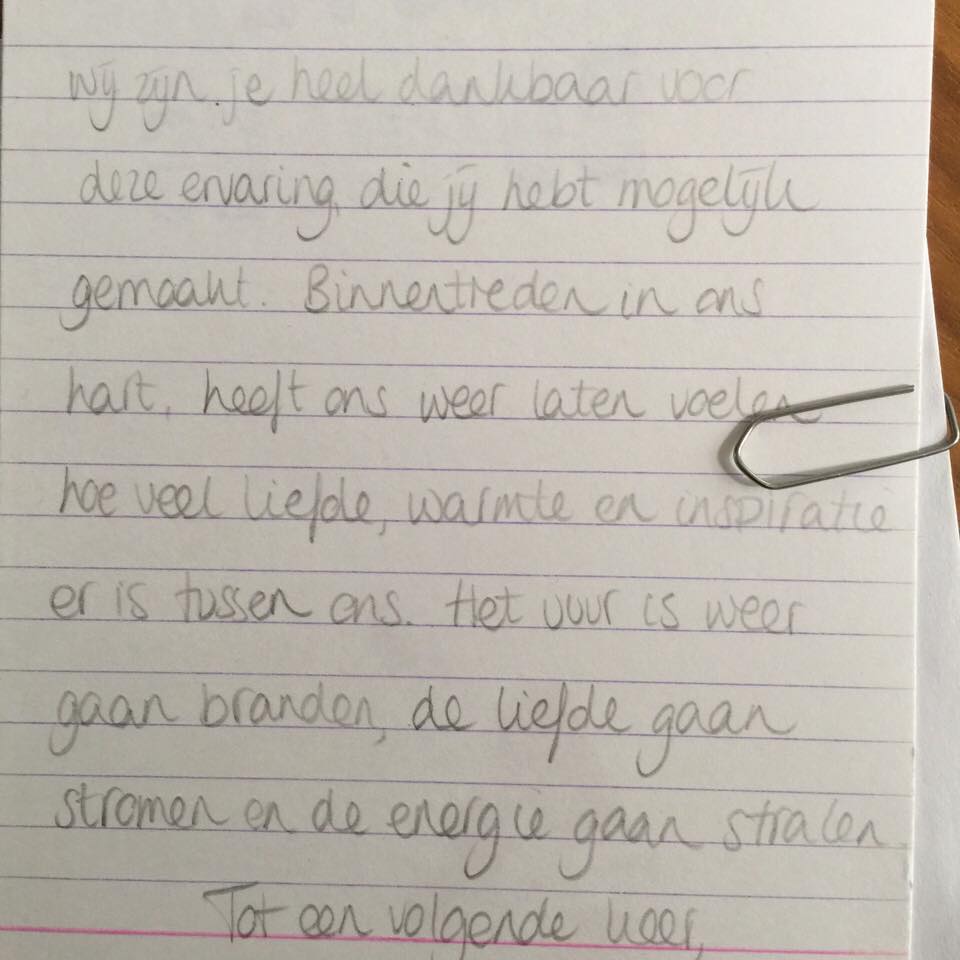 Wij zijn je heel dankbaar voor
deze ervaring, die jij hebt mogelijk
gemaakt. Binnentreden in ons
hart, heeft ons weer laten voelen
hoe veel liefde, warmte en inspiratie
er is tussen ons. Het vuur is weer
gaan branden, de liefde gaan
stromen en de energie gaan stralen
Tot een volgende keer,